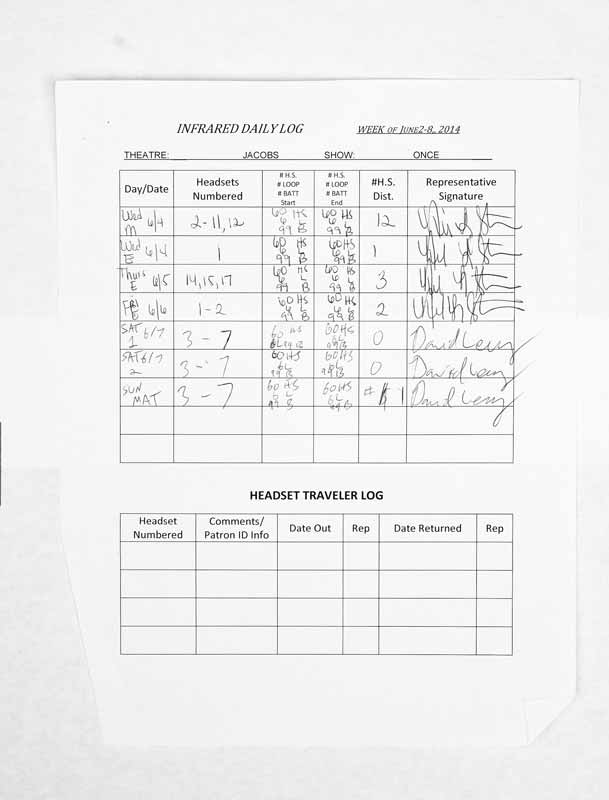 INFRARED DAILY LOG WEEK OF JUNE2-8, 2014
THEATRE: JACOBS SHOW: ONCE
Day/Date Headsets Numbered # H.S. # LOOP # BATT Start # H.S. # LOOP # BATT End #H.S. Dist. Representative Signature
Wed M 6/4 2-11, 12 60 HS 6 L 99 B 60 HS 6 L 99 B 12
Wed E 6/4 1 60 HS 6 L 99 B 60 HS 6 L 99 B 1
Thurs E 6/5 14, 15, 17 60 HS 6 L 99 B 60 HS 6 L 99 B 3
FRI E 6/6 1-2 60 HS 6 L 99 B 60 HS 6 L 99 B 2
SAT 6/7 1 3 - 7 60 HS 6L 99 B 60 HS 6L 99 B 0 David Leary
SAT 6/7 2 3 - 7 60 HS 6L 99 B 60 HS 6L 99 B 0 David Leary
SUN MAT 3 - 7 60 HS 6L 99 B 60 HS 6L 99 B # 1 David Leary
HEADSET TRAVELER LOG
Headset Numbered Comments/ Patron ID Info Date Out Rep Date Returned Rep